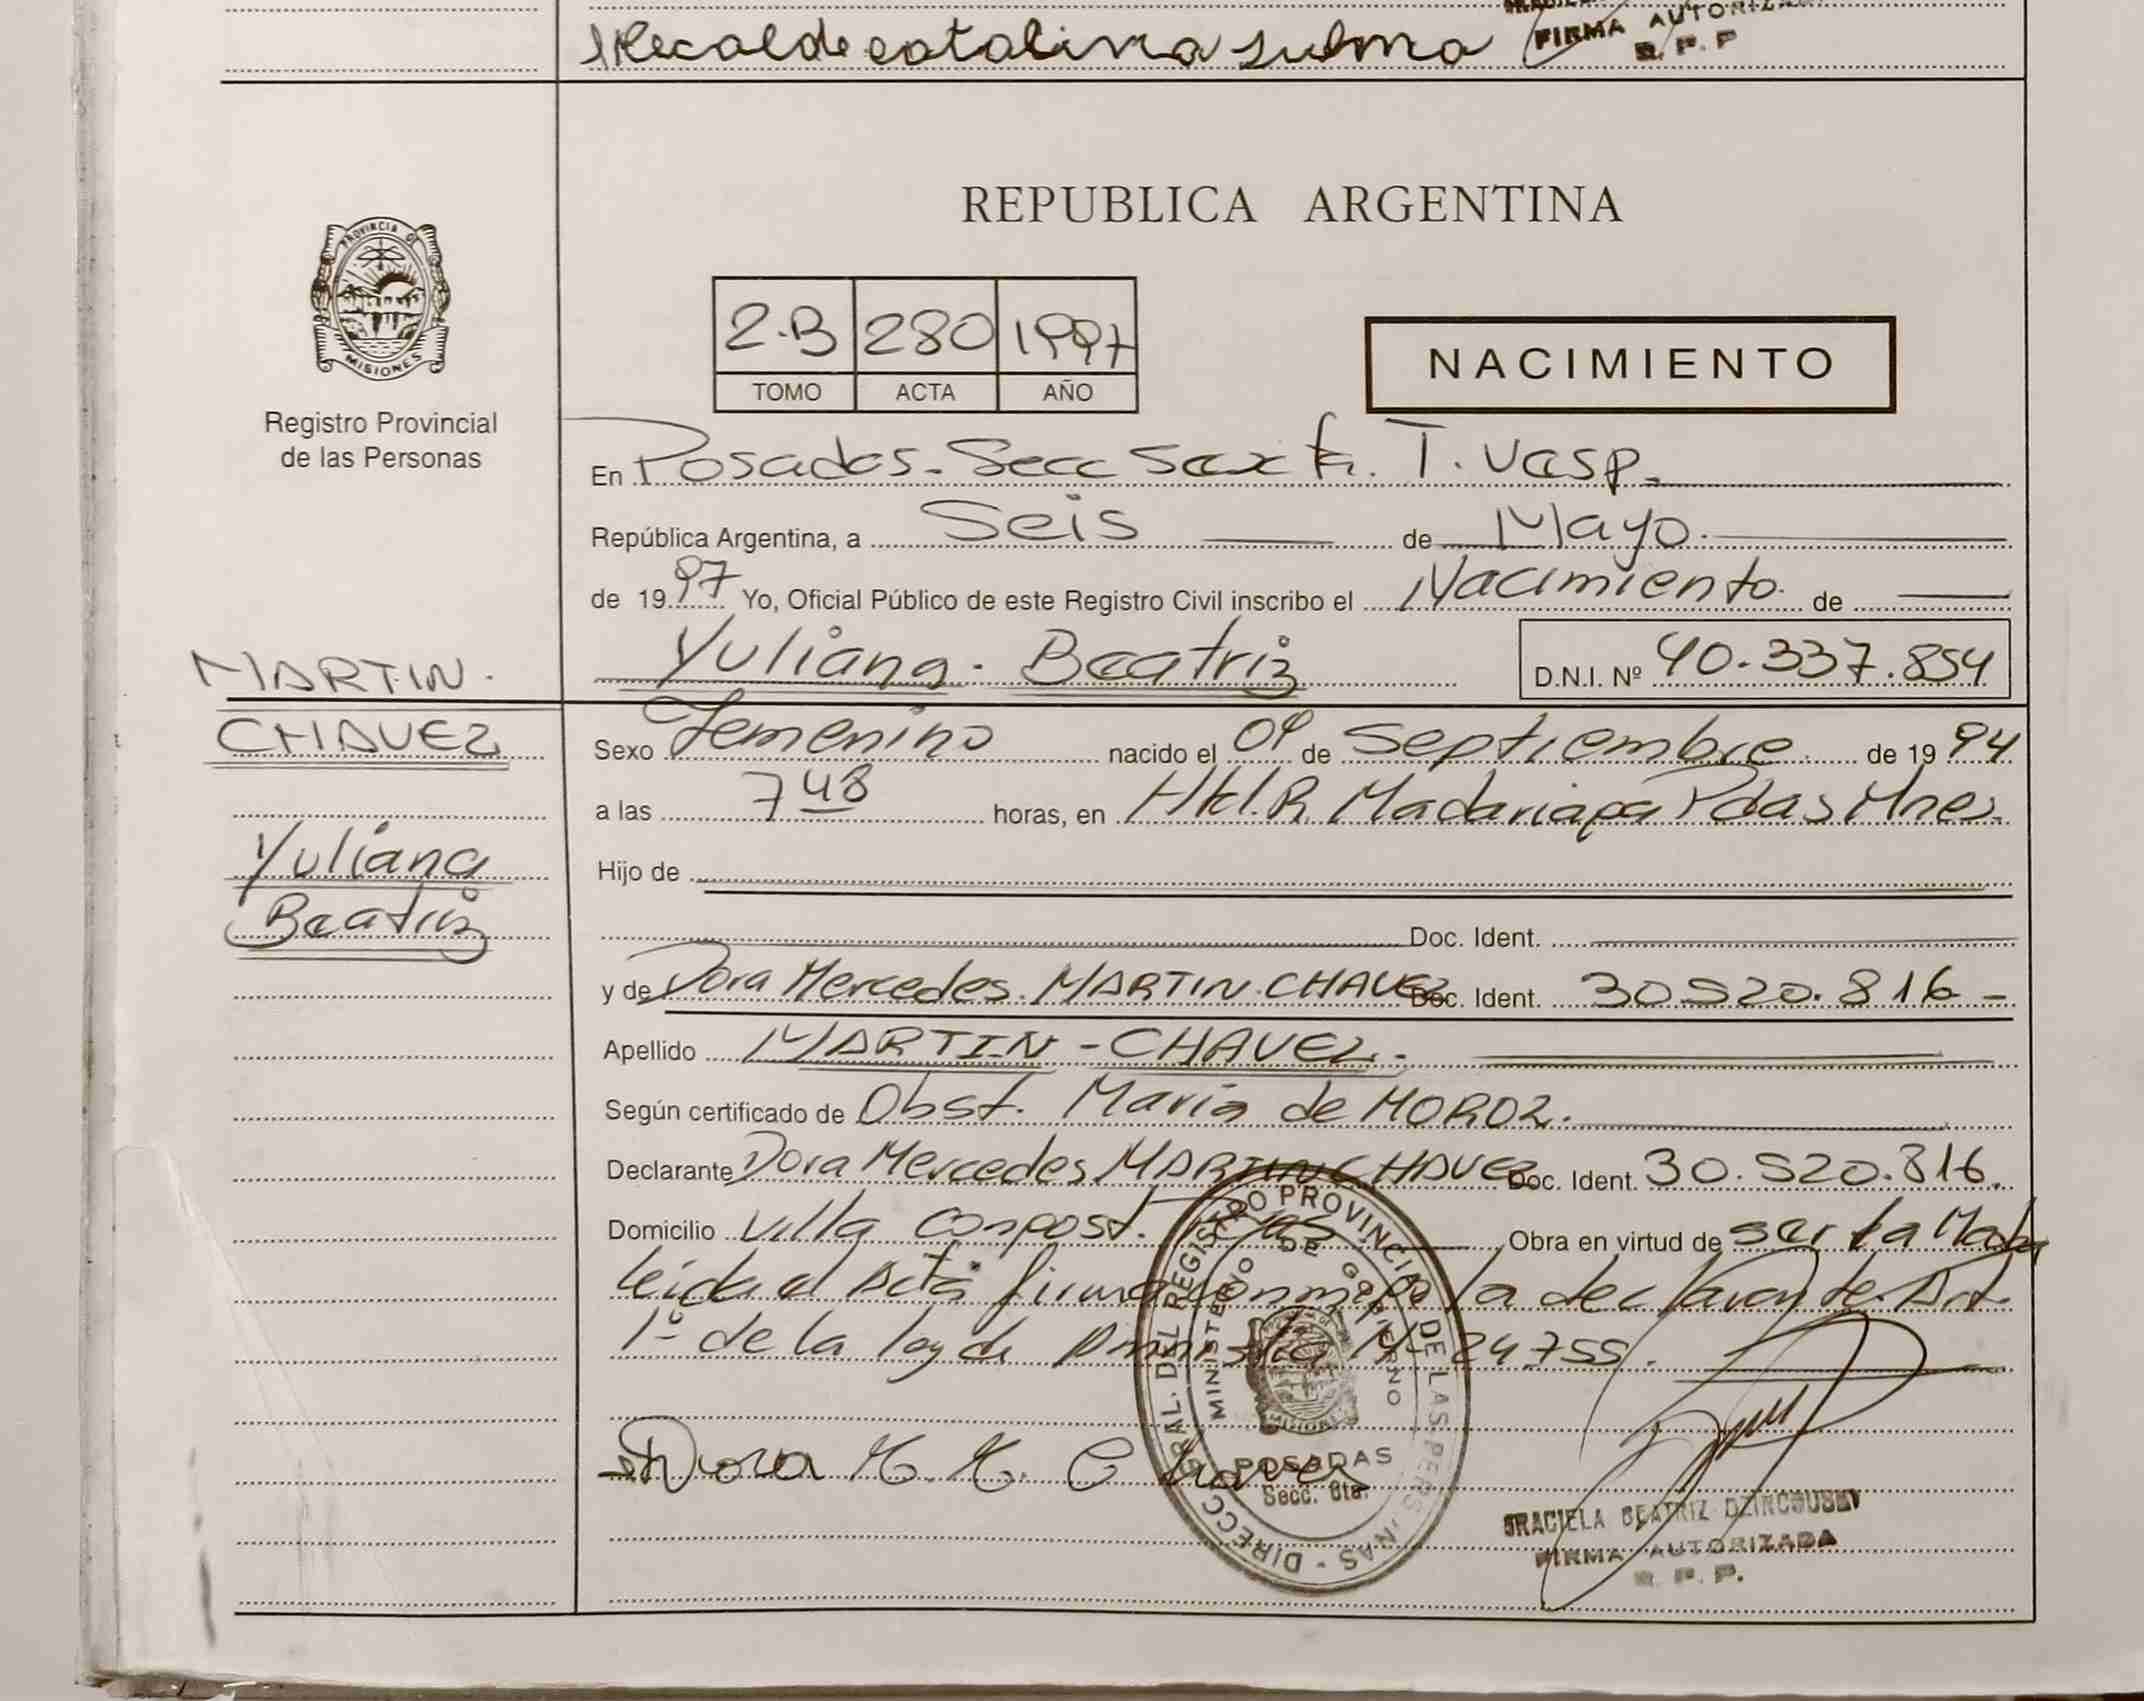 Recalde catalina sulma
FIRMA AUTORIZADA
R. P. P
PROVINCIA DE
MISIONES
Registro Provincial
de las Personas
REPUBLICA ARGENTINA
2-B 280 1997
TOMO ACTA AÑO
NACIMIENTO
En Posadas - Secc Sexta. T. Vesp.
República Argentina, a Seis de Mayo.
de 1997 Yo, Oficial Público de este Registro Civil inscribo el Nacimiento. de
Yuliana - Beatriz D.N.I. Nº 40.337.854
MARTIN
CHAVEZ
Yuliana
Beatriz
Sexo Femenino nacido el 09 de Septiembre de 1994
a las 7 48 horas, en Htal. R. Madariaga Pdas Mnes.
Hijo de
Doc. Ident.
y de Dora Mercedes. MARTIN CHAVEZ Doc. Ident. 30.520.816 -
Apellido MARTIN - CHAVEZ.
Según certificado de Obst. Maria de MOROZ.
Declarante Dora Mercedes MARTIN CHAVEZ Doc. Ident. 30.520.816.
Domicilio Villa Conpost. Pdas Obra en virtud de ser la Madre
leida el Acta firma conmigo la declarante. Art.
1º de la ley de Amnistia Nº 24755.
Dora M. M. Chavez
DIRECC. GRAL. DEL REGISTRO PROVINCIAL DE LAS PERSONAS
MINISTERIO DE GOBIERNO
MISIONES
POSADAS
Secc. 6ta.
GRACIELA BEATRIZ
FIRMA AUTORIZADA
R. P. P.